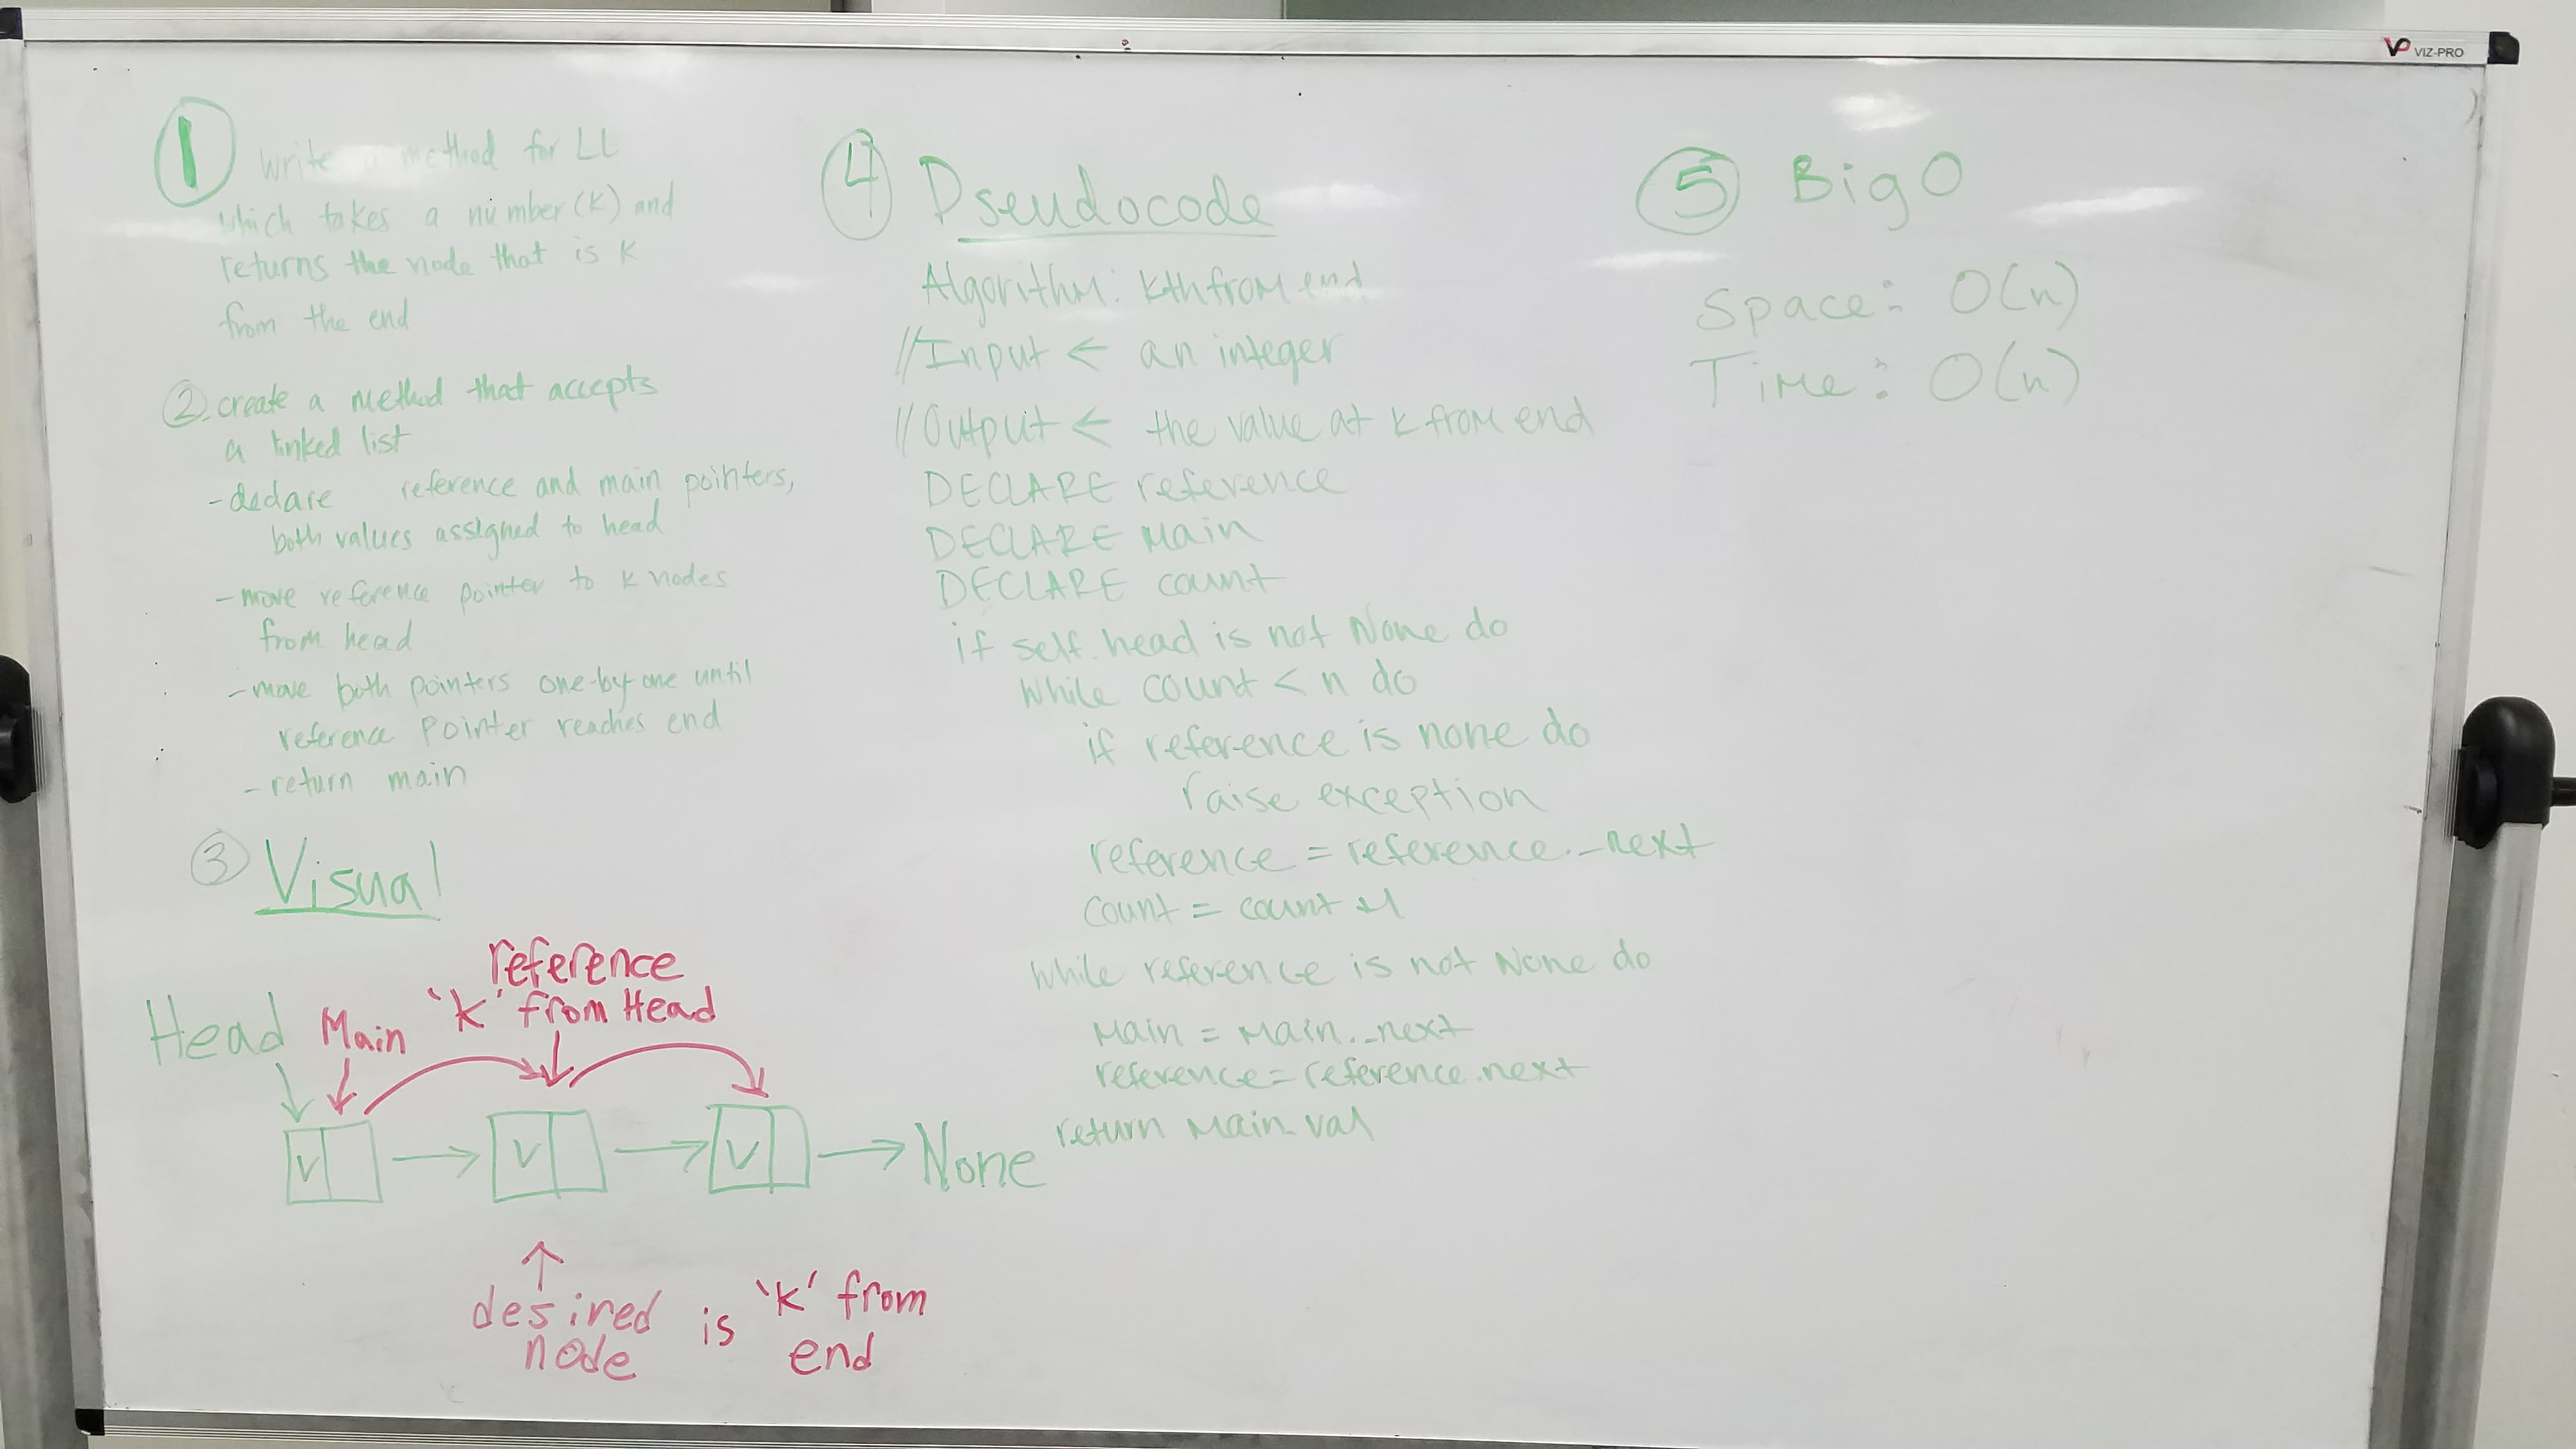 VP VIZ-PRO
1 write a method for LL
which takes a number (k) and
returns the node that is k
from the end
2. create a method that accepts
a linked list
- declare reference and main pointers,
both values assigned to head
- move reference pointer to k nodes
from head
- move both pointers one-by-one until
reference pointer reaches end
- return main
3 Visual
reference
'k' from Head
Head Main
V V V None
desired node is 'k' from end
4 Pseudocode
Algorithm: kthfromend
//Input ← an integer
//Output ← the value at k from end
DECLARE reference
DECLARE main
DECLARE count
if self.head is not None do
while count < n do
if reference is none do
raise exception
reference = reference._next
count = count +1
while reference is not None do
main = main._next
reference = reference.next
return main.val
5 Big O
Space: O(n)
Time: O(n)